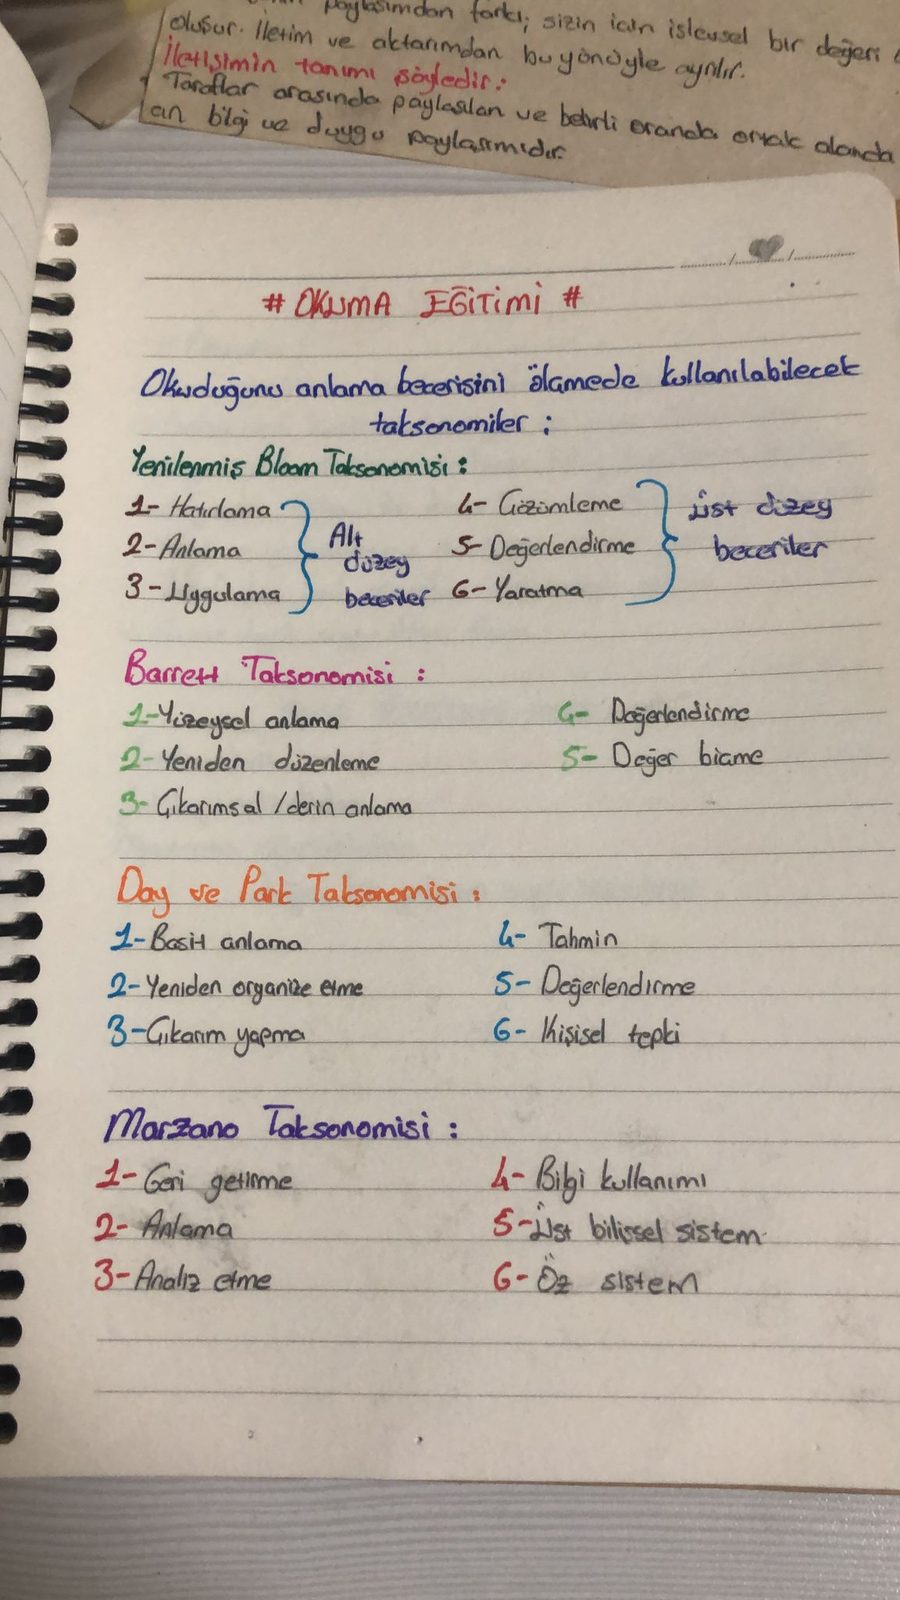 paylaşımdan farkı; sizin için işlevsel bir değeri
oluşur. İletim ve aktarımdan bu yönüyle ayrılır.
İletişimin tanımı şöyledir:
Taraflar arasında paylaşılan ve belirli oranda ortak alanda
an bilgi ve duygu paylaşımıdır.
# OKUMA EĞİTİMİ #
Okuduğunu anlama becerisini ölçmede kullanılabilecek
taksonomiler :
Yenilenmiş Bloom Taksonomisi :
1- Hatırlama 4- Çözümleme
2- Anlama 5- Değerlendirme
3- Uygulama 6- Yaratma
Alt düzey beceriler
Üst düzey beceriler
Barrett Taksonomisi :
1- Yüzeysel anlama 4- Değerlendirme
2- Yeniden düzenleme 5- Değer biçme
3- Çıkarımsal / derin anlama
Day ve Park Taksonomisi :
1- Basit anlama 4- Tahmin
2- Yeniden organize etme 5- Değerlendirme
3- Çıkarım yapma 6- Kişisel tepki
Marzano Taksonomisi :
1- Geri getirme 4- Bilgi kullanımı
2- Anlama 5- Üst bilişsel sistem
3- Analiz etme 6- Öz sistem